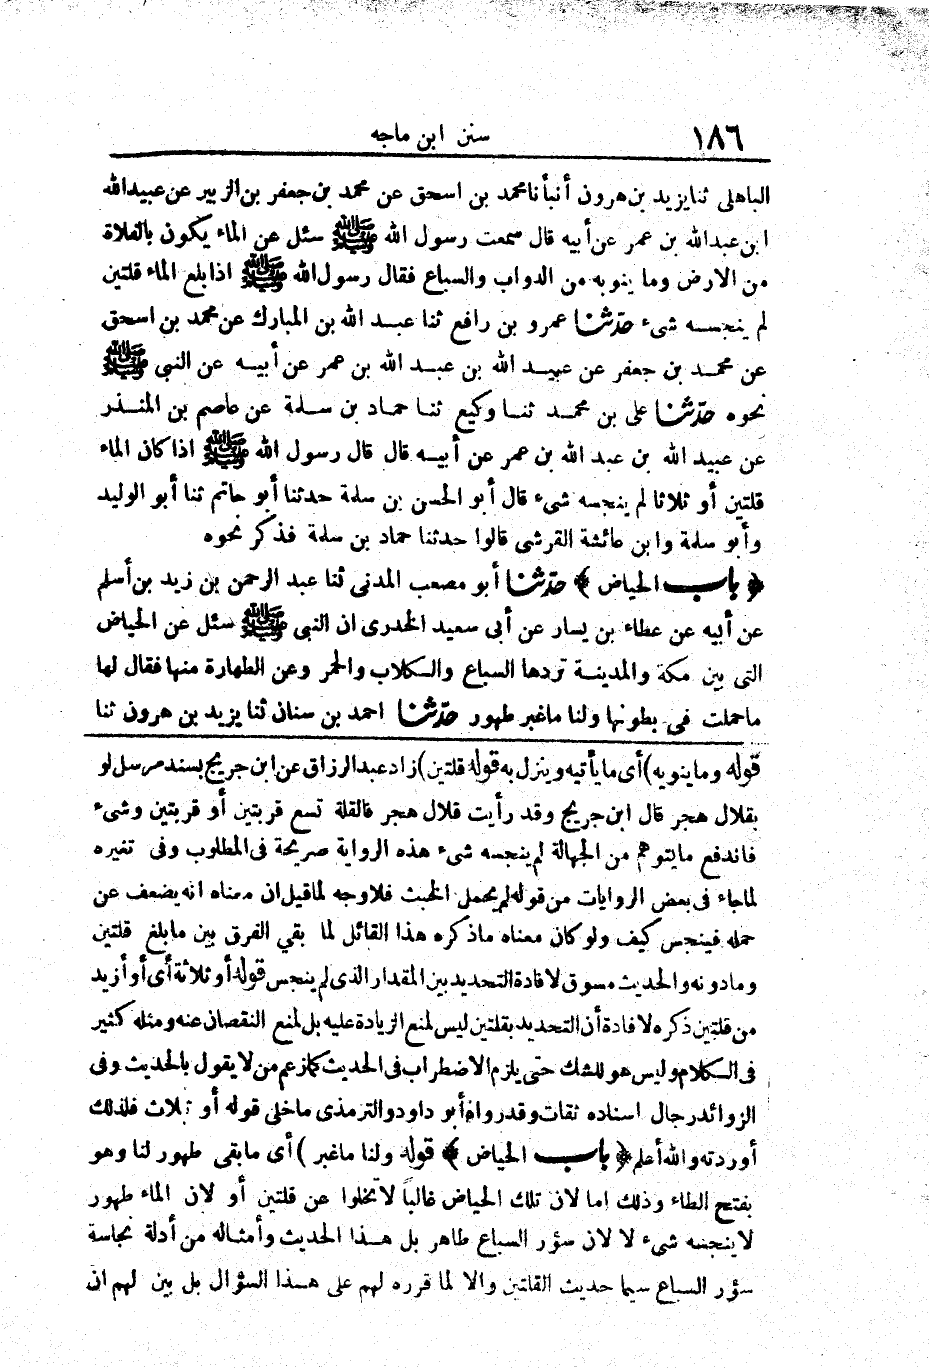 ١٨٦ سنن ابن ماجه
الباهلى ثنا يزيد بن هرون أنبأنا محمد بن اسحق عن محمد بن جعفر بن الزبير عن عبيد الله
ابن عبدالله بن عمر عن أبيه قال سمعت رسول الله ﷺ سئل عن الماء يكون بالفلاة
من الارض وما ينوبه من الدواب والسباع فقال رسول الله ﷺ اذا بلغ الماء قلتين
لم ينجسه شىء حدّثنا عمرو بن رافع ثنا عبد الله بن المبارك عن محمد بن اسحق
عن محمد بن جعفر عن عبيد الله بن عبد الله بن عمر عن أبيه عن النبى ﷺ
نحوه حدّثنا على بن محمد ثنا وكيع ثنا حماد بن سلمة عن عاصم بن المنذر
عن عبيد الله بن عبد الله بن عمر عن أبيه قال قال رسول الله ﷺ اذا كان الماء
قلتين أو ثلاثا لم ينجسه شىء قال أبو الحسن بن سلمة حدثنا أبو حاتم ثنا أبو الوليد
وأبو سلمة وابن عائشة القرشى قالوا حدثنا حماد بن سلمة فذكر نحوه
﴿ باب الحياض ﴾ حدّثنا أبو مصعب المدنى ثنا عبد الرحمن بن زيد بن أسلم
عن أبيه عن عطاء بن يسار عن أبى سعيد الخدرى ان النبى ﷺ سئل عن الحياض
التى بين مكة والمدينة تردها السباع والكلاب والحمر وعن الطهارة منها فقال لها
ما حملت فى بطونها ولنا ما غبر طهور حدّثنا احمد بن سنان ثنا يزيد بن هرون ثنا
قوله وما ينوبه) أى ما يأتيه وينزل به قوله قلتين) زاد عبد الرزاق عن ابن جريج بسند مرسل لو
بقلال هجر قال ابن جريج وقد رأيت قلال هجر فالقلة تسع قربتين أو قربتين وشىء
فاندفع ما يتوهم من الجهالة لم ينجسه شىء هذه الرواية صريحة فى المطلوب وفى تغيره
لما جاء فى بعض الروايات من قوله لم يحمل الخبث فلا وجه لما قيل ان معناه انه يضعف عن
حمله فينجس كيف ولو كان معناه ما ذكره هذا القائل لما بقي الفرق بين ما بلغ قلتين
وما دونه والحديث مسوق لافادة التحديد بين المقدار الذى لم ينجس قوله أو ثلاثة أى أو أزيد
من قلتين ذكره لافادة أن التحديد بقلتين ليس لمنع الزيادة عليه بل لمنع النقصان عنه ومثله كثير
فى الكلام وليس هو للشك حتى يلزم الاضطراب فى الحديث كما زعم من لا يقول بالحديث وفى
الزوائد رجال اسناده ثقات وقد رواه أبو داود والترمذى ما خلى قوله أو ثلاث فلذلك
أوردته والله أعلم ﴿ باب الحياض ﴾ قوله ولنا ما غبر) أى ما بقى طهور لنا وهو
بفتح الطاء وذلك اما لان تلك الحياض غالباً لا تخلوا عن قلتين أو لان الماء طهور
لا ينجسه شىء لا لان سؤر السباع طاهر بل هذا الحديث وأمثاله من أدلة نجاسة
سؤر السباع سيما حديث القلتين والا لما قرره لهم على هذا السؤال بل بين لهم ان